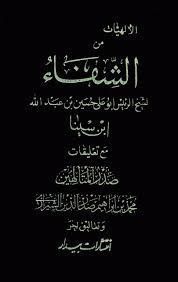 الالهيات
من
الشفاء
لشيخ الرئيس ابو علی حسین بن عبد الله
ابن سينا
مع تعليقات
صدر المتألهين
محمد بن ابراهيم صدر الدين الشيرازى
انتشارات بيدار